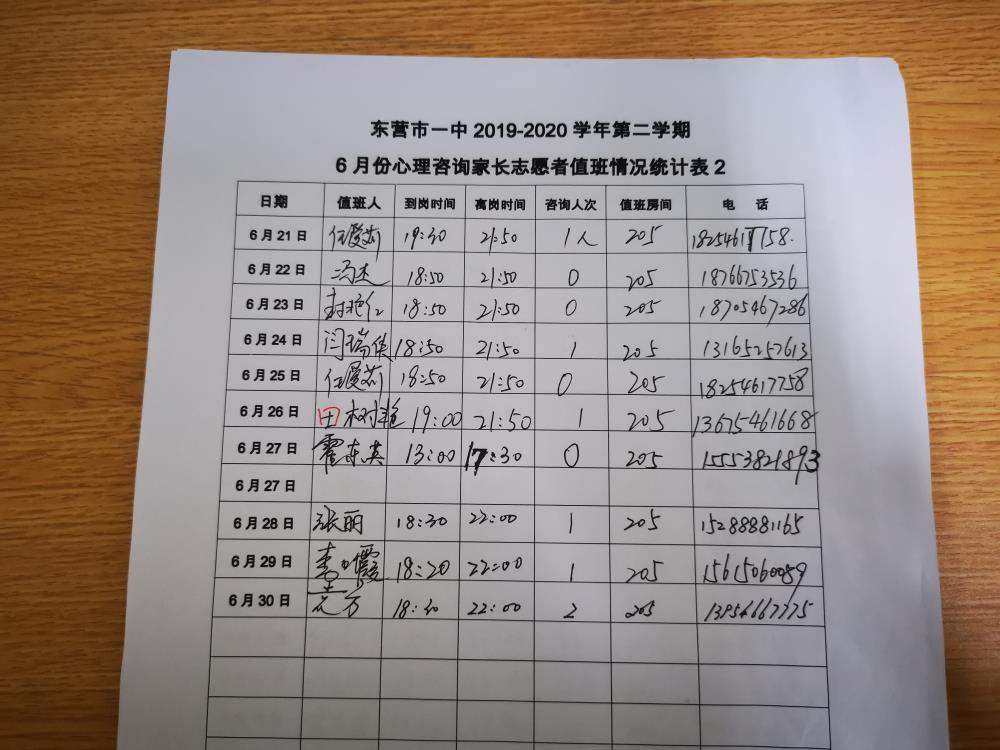 东营市一中 2019-2020 学年第二学期
6 月份心理咨询家长志愿者值班情况统计表 2
日期 值班人 到岗时间 离岗时间 咨询人次 值班房间 电 话
6 月 21 日 任爱莉 19:30 21:50 1人 205 18254617758.
6 月 22 日 冯杰 18:50 21:50 0 205 18766753536
6 月 23 日 18:50 21:50 0 205 18705467286
6 月 24 日 闫瑞侠 18:50 21:50 1 205 13165257613
6 月 25 日 任爱莉 18:50 21:50 0 205 18254617758
6 月 26 日 田树艳 19:00 21:50 1 205 13675461668
6 月 27 日 霍东英 13:00 17:30 0 205 15553821893
6 月 27 日
6 月 28 日 张丽 18:30 22:00 1 205 15288881165
6 月 29 日 18:20 22:00 1 205 15615060089
6 月 30 日 18:30 22:00 2 205